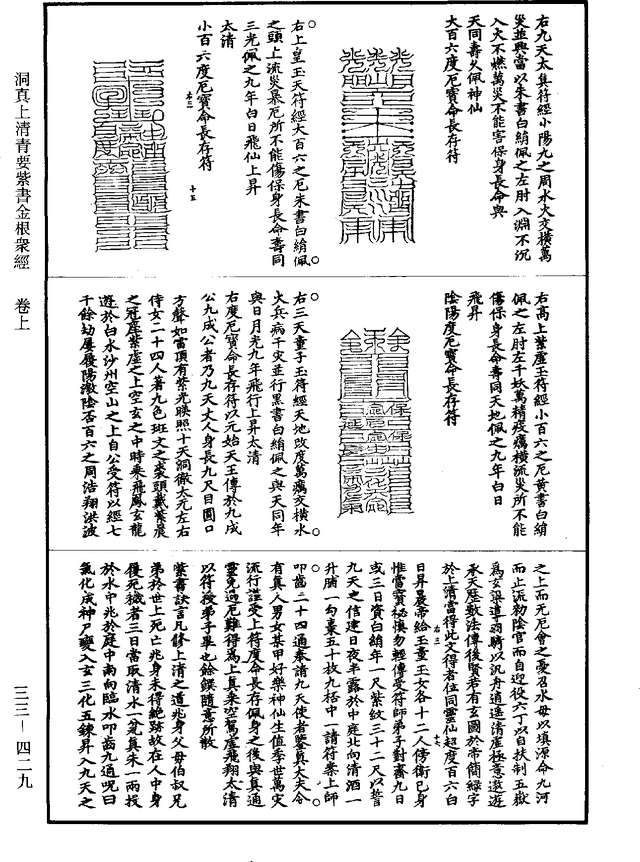 洞真上清青要紫書金根眾經　卷上
三三—四二九
右九天太真符經小陽九之周水火交橫萬
災並興當以朱書白絹佩之左肘入淵不沉
入火不燃萬災不能害保身長命與
天同壽久佩神仙
大百六度厄寶命長存符
右上皇玉天符經大百六之厄朱書白絹佩
之頭上流災梟厄所不能傷保身長命壽同
三光佩之九年白日飛仙上昇
太清
小百六度厄寶命長存符
右三
十五
右高上紫虛玉符經小百六之厄黃書白絹
佩之左肘左千妖萬精疫癘橫流災所不能
傷保身長命壽同天地佩之九年白日
飛昇
陰陽度厄寶命長存符
右三天童子玉符經天地改度萬癘交橫水
火兵病千災並行黑書白絹佩之與天同年
與日月光九年飛行上昇太清
右度厄寶命長存符以元始天王傳於九成
公九成公者乃九天丈人身長九尺目圓口
方聲如雷頂有紫光映照十天洞徹太元左右
侍女二十四人著九色班文之裘頭戴紫晨
之冠座紫虛之上空玄之中時乘飛鳳玄龍
遊於白水沙州空山之上自公受符以經七
千餘劫屢履陽激陰否百六之周浩翔洪波
之上而无厄會之憂召水母以填源命九河
而止流勒陰官而自迎役六丁以自扶制五嶽
為玄梁道羽騎以沉舟逍遙清虛極意遨遊
承天歷數法傳後賢若有玄圖於帝簡綠字
於上清當得此文得者位同靈仙超度百六白
右三
十六
日昇晨帝給玉童玉女各十二人傍衛己身
惟當寶秘慎勿輕傳受符師弟子對齋九日
或三日賫白絹年一尺紫紋三十二尺以誓
九天之信建日夜半露於中庭北向清酒一
升脯一朐棗五十枚九枯中一請符案上師
叩齒二十四通奉請九天使者鑒真大夫今
有真人男女某甲好樂神仙生值季世萬災
流行謹受上符度命長存佩身之後與真通
靈免過厄難得為上真乘空駕虛飛翔太清
以符授弟子畢也餘饌隨意所散
紫書訣言凡修上清之道兆身父母伯叔兄
弟於世上死亡兆身未得絕跡故在人中身
履死穢者三日當取清水一瓮真朱一兩投
於水中兆於庭中南向臨水叩齒九通呪曰
氣化成神尸變入玄三化五鍊昇入九天之